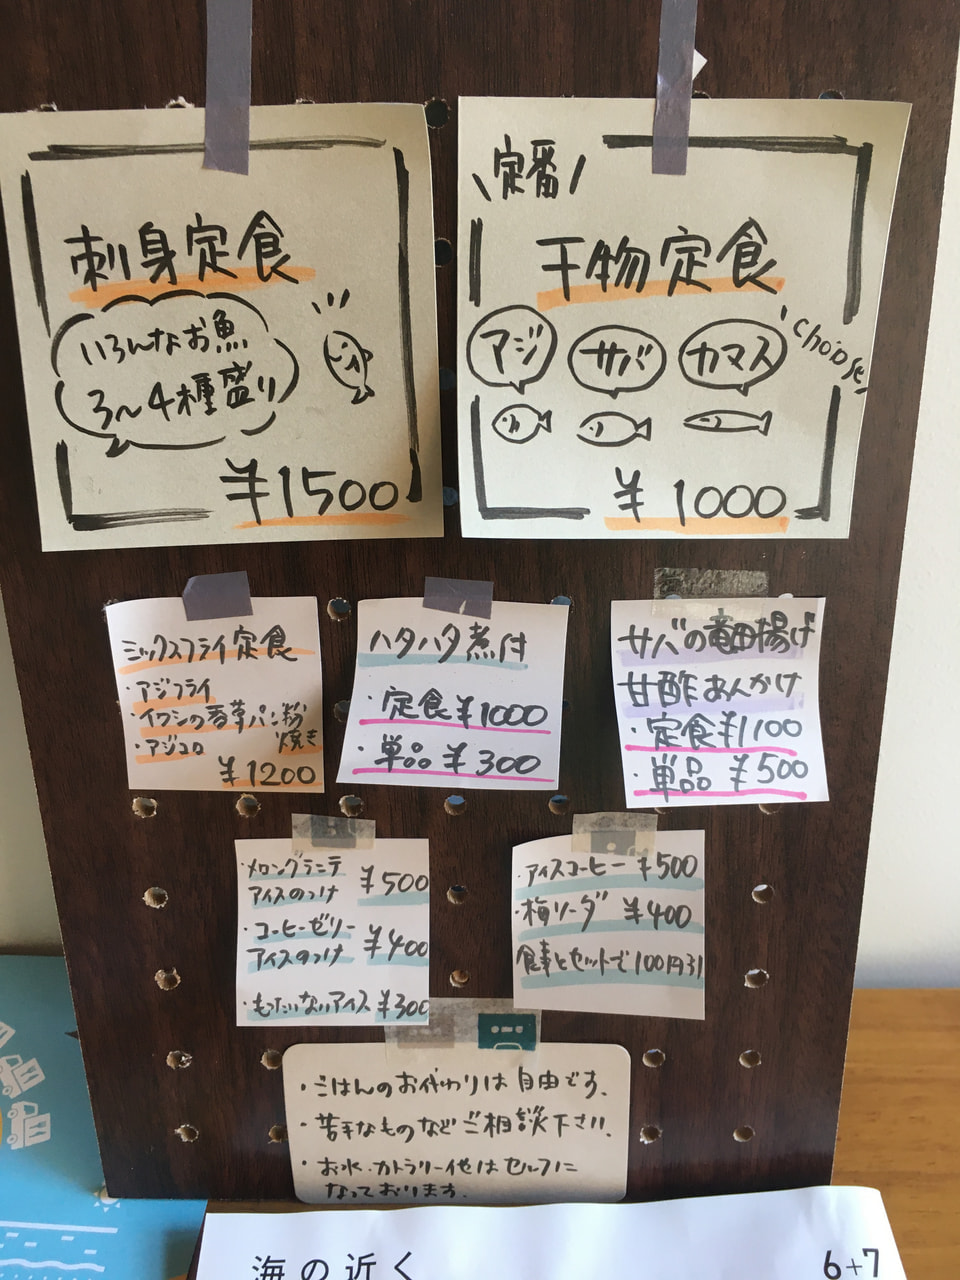 刺身定食
いろんなお魚
3〜4種盛り
¥1500
\定番/
干物定食
アジ
サバ
カマス
choose
¥1000
ミックスフライ定食
・アジフライ
・イワシの香草パン粉
焼き
・アジコロ
¥1200
ハタハタ煮付
・定食¥1000
・単品¥300
サバの竜田揚げ
甘酢あんかけ
・定食¥1100
・単品 ¥500
・メロングラニテ
アイスのっけ ¥500
・コーヒーゼリー
アイスのっけ ¥400
・もったいないアイス ¥300
・アイスコーヒー ¥500
・梅ソーダ ¥400
食事とセットで100円引
・ごはんのお代わりは自由です。
・苦手なものなどご相談下さい。
・お水、カトラリー他はセルフに
なっております。
海の近く
6+7